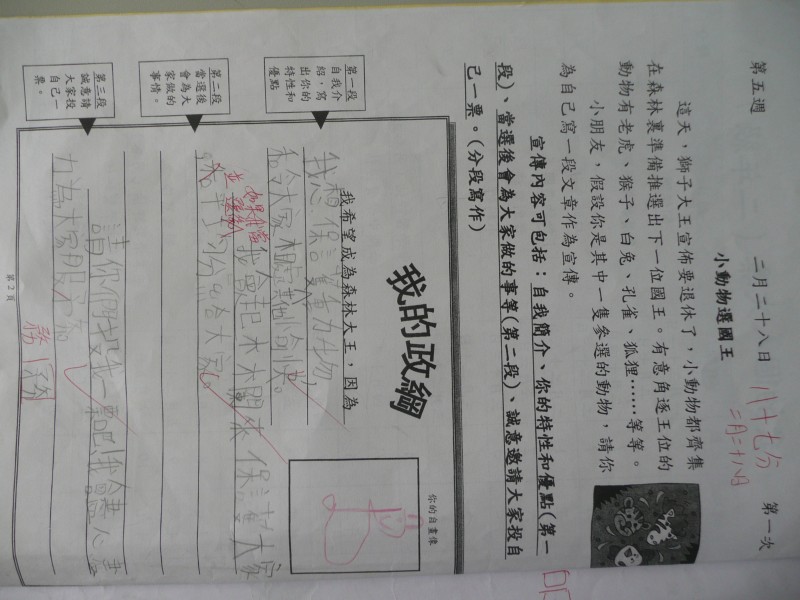 第五週
二月二十八日
八十七分
二月二十八日
第一次
小動物選國王
這天，獅子大王宣佈要退休了，小動物都齊集
在森林裏準備推選出下一位國王。有意角逐王位的
動物有老虎、猴子、白兔、孔雀、狐狸……等等。
小朋友，假設你是其中一隻參選的動物，請你
為自己寫一段文章作為宣傳。
宣傳內容可包括：自我簡介、你的特性和優點（第一
段）、當選後會為大家做的事等（第二段）、誠意邀請大家投自
己一票。（分段寫作）
第一段
自我介
紹，寫
出你的
特性和
優點
第二段
當選後
會為大
家做的
事情。
第三段
誠意請
大家投
自己一
票。
我的政綱
你的自畫像
我希望成為森林大王，因為
我想保護動物，
令大家
保護大家
給大家。
請你們投我一票吧！我會
力為大家服
務
第2頁